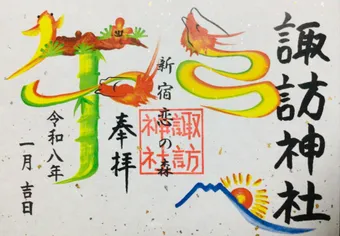 諏訪神社
新宿恋の森
諏訪
神社
奉拝
令和八年
一月 吉日